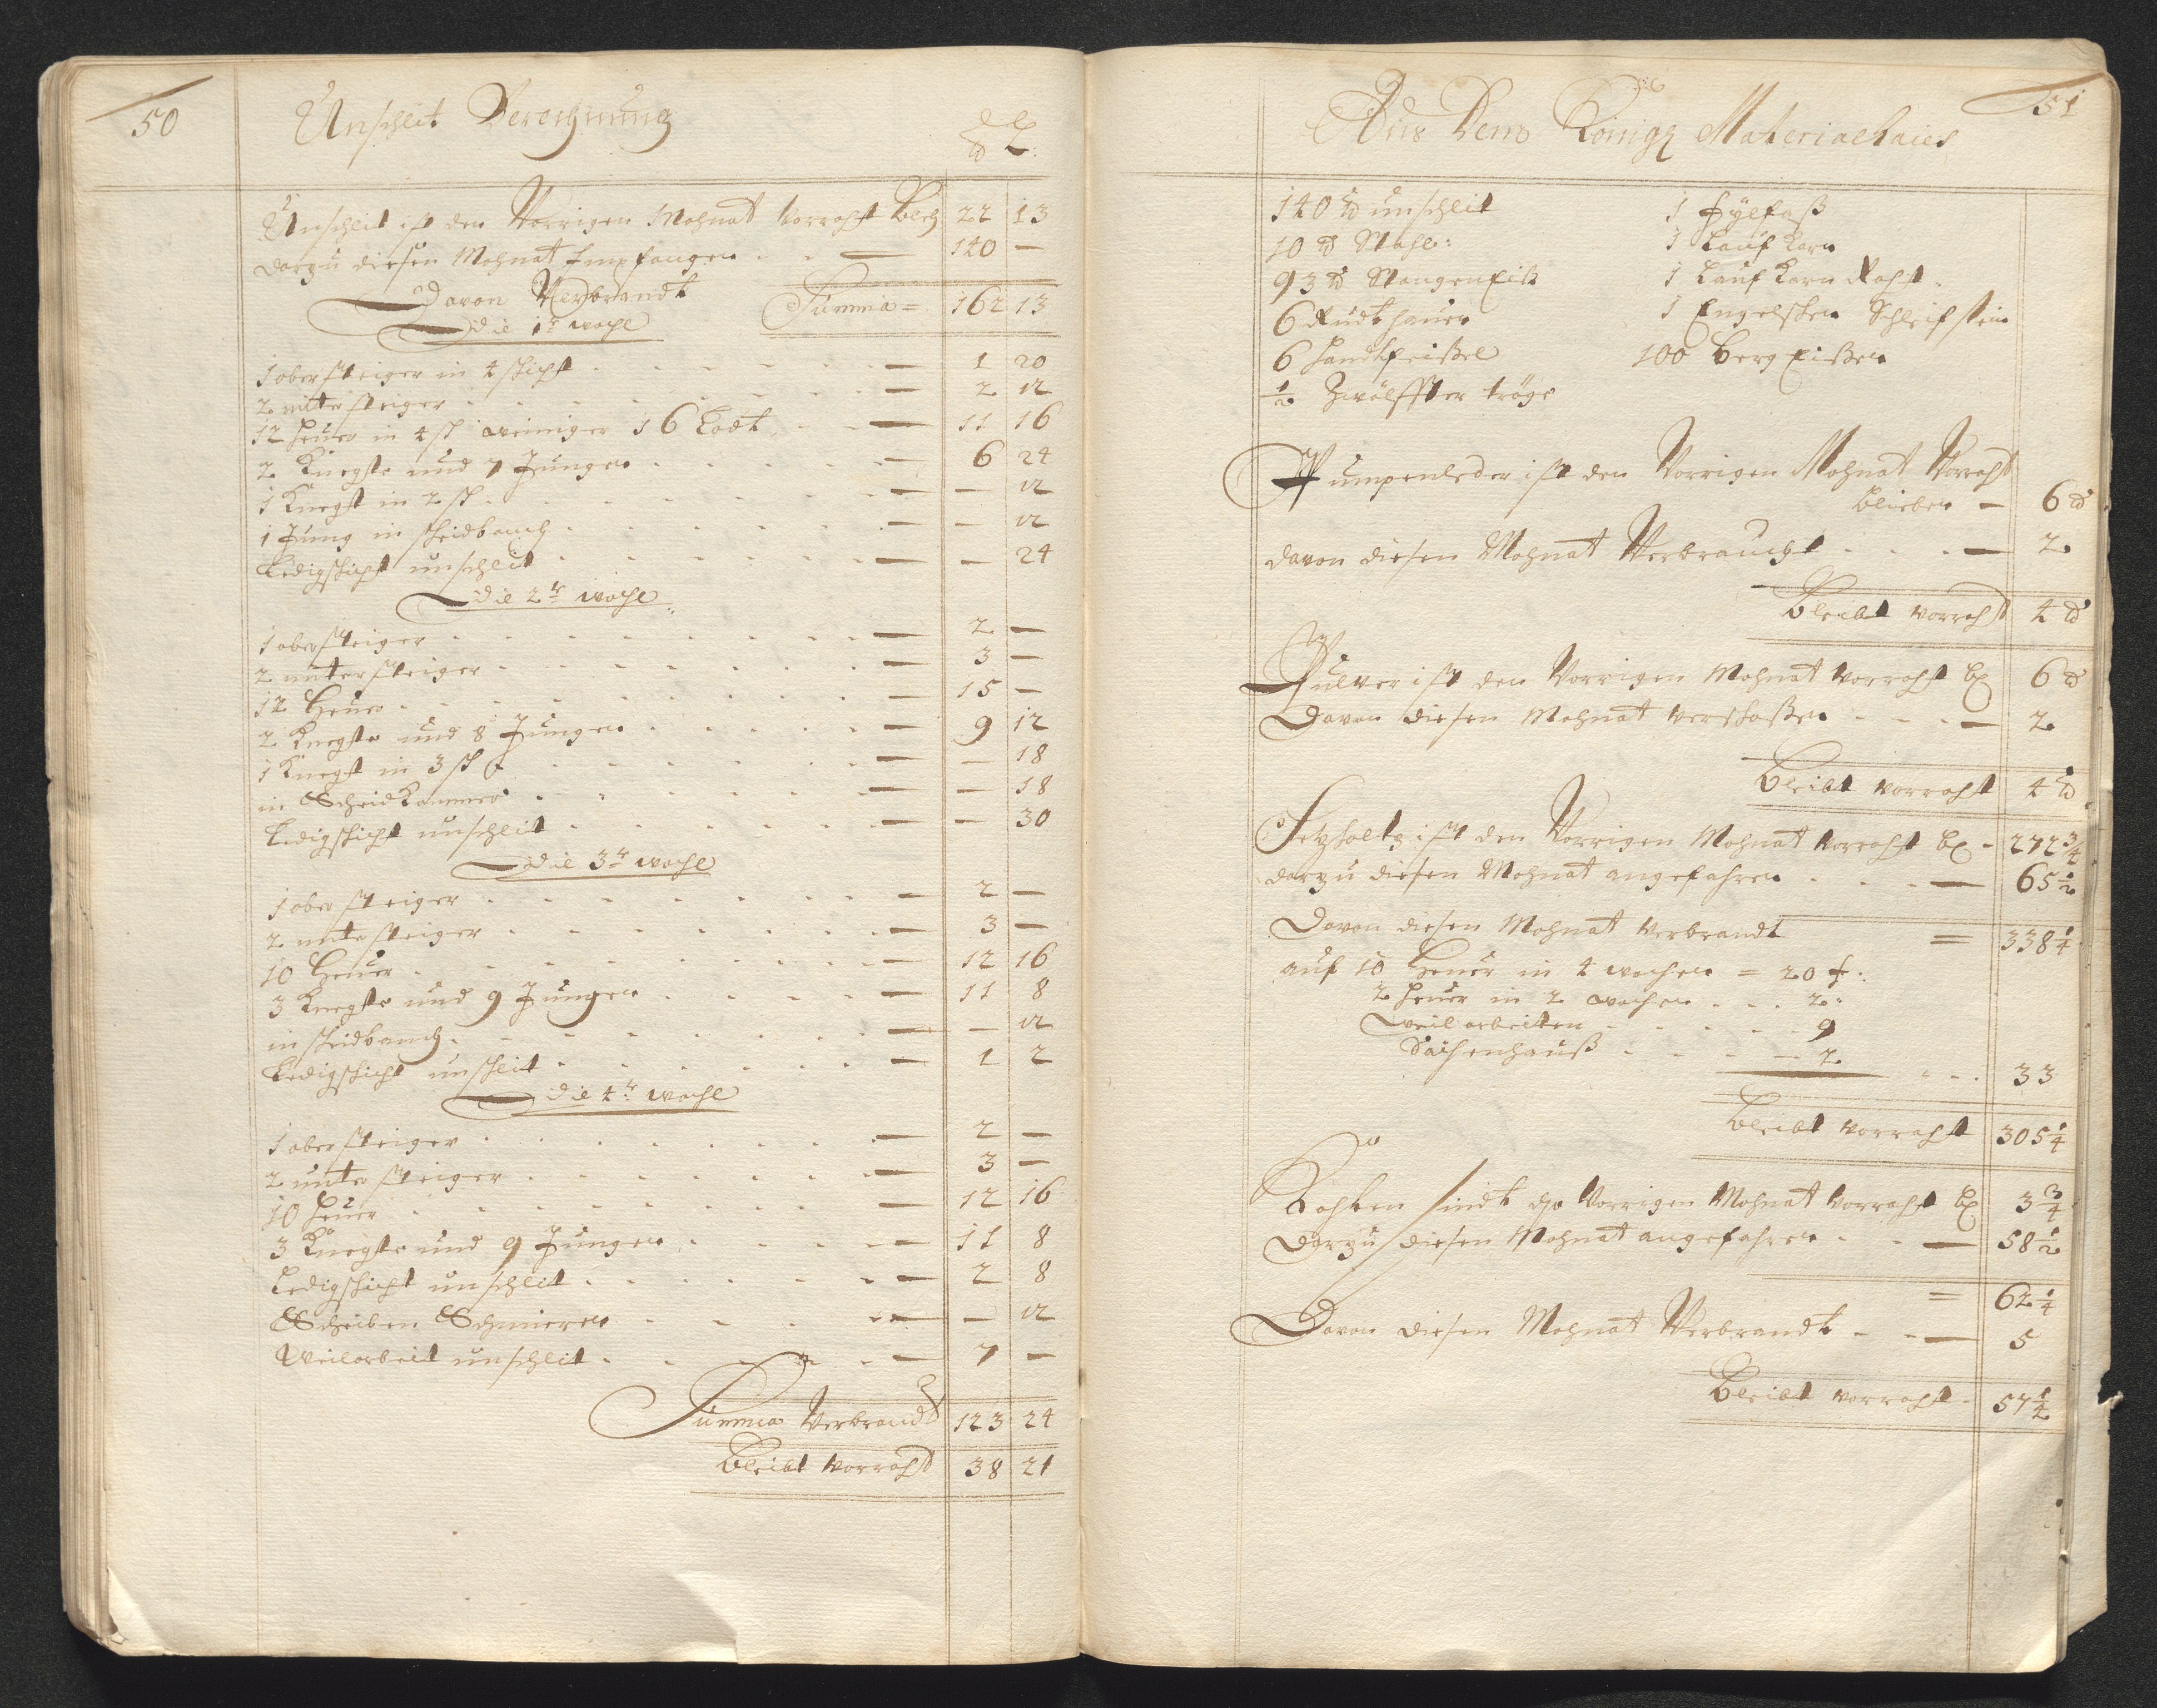 50
Unschlit Berechnung
℔ L.
Unschlit ist den Vorrigen Mohnat vorraht Bleb 22 13
darzu diesen Mohnat Empfangen . . — 140 —
Davon Verbrandt Summa = 162 13
Die 1te woche
1 obersteiger in 4 schicht — 1 20
2 untersteiger — 2 12
12 heuer in 4 sch weiniger 16 Lodt — 11 16
2 Knegte und 7 Jungen — 6 24
1 Knegt in 2 sch — — 12
1 Jung in scheidbanch — — 12
Ledigschicht unschlit — — 24
Die 2te woche
1 obersteiger — 2 —
2 untersteiger — 3 —
12 Heuer — 15 —
2 Knegte und 8 Jungen — 9 12
1 Knegt in 3 sch — — 18
in Scheidkammer — — 18
Ledigschicht unschlit — — 30
Die 3te woche
1 obersteiger — 2 —
2 untersteiger — 3 —
10 Heuer — 12 16
3 Knegte und 9 Jungen — 11 8
in scheidbanch — — 12
Ledigschicht unschlit — 1 2
Die 4te woche
1 obersteiger — 2 —
2 untersteiger — 3 —
10 heuer — 12 16
3 Knegte und 9 Jungen — 11 8
Ledigschicht unschlit — 2 8
Scheiben Schmieren — — 12
Weilarbeit unschlit — 7 —
Summa Verbrandt 123 24
Bleibt vorraht 38 21
51
Aus dem Königl Materialhaus
140 ℔ unschlit 1 fylfaß
10 ℔ Stahl: 1 Lauf Karn
93 ℔ Stangen Eiß 1 Lauf Karn Raht.
6 Rudthauen 1 Engelschen Schleifstein
6 handtfeißel 100 berg Eißen
½ Zwölffter tröge
Pumpenleder ist den Vorrigen Mohnat Vorraht
blieben — 6 ℔
davon diesen Mohnat Verbraucht . . . — 2
Bleibt vorraht 4 ℔
Pulver ist den Vorrigen Mohnat vorraht bl 6 ℔
Davon diesen Mohnat verschoßen — 2
Bleibt vorraht 4 ℔
Setzholtz ist den Vorrigen Mohnat vorraht bl - 272 ¾
darzu diesen Mohnat angefahren — 65 ½
Davon diesen Mohnat verbrandt = 338 ¼
auf 10 Heuer in 4 wochen = 20 f:
2 heuer in 2 wochen . . . 2.
Weilarbeiten . . . 9
. . . — 2
33
Bleibt vorraht 305 ¼
Kohlen sindt den Vorrigen Mohnat vorraht bl 3 ¾
Darzu diesen Mohnat angefahren . . — 58 ½
= 62 ¼
Davon diesen Mohnat Verbrandt - - — 5
Bleibt vorraht - 57 ¼